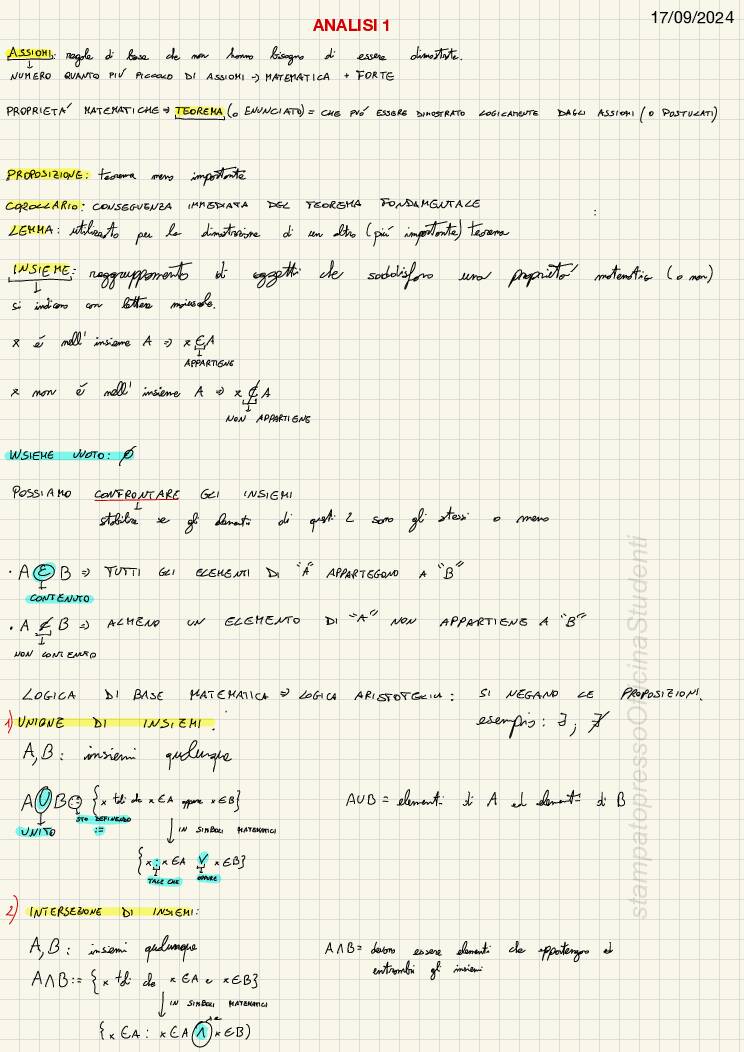 ANALISI 1
17/09/2024
ASSIOMI: regole di base che non hanno bisogno di essere dimostrate.
NUMERO QUANTO PIÚ PICCOLO DI ASSIOMI → MATEMATICA + FORTE
PROPRIETÁ MATEMATICHE ⇒ TEOREMA (o ENUNCIATO) = CHE PUÓ ESSERE DIMOSTRATO LOGICAMENTE DAGLI ASSIOMI (O POSTULATI)
PROPOSIZIONE: teorema meno importante
COROLLARIO: CONSEGUENZA IMMEDIATA DEL TEOREMA FONDAMENTALE
:
LEMMA: utilizzato per la dimostrazione di un altro (piú importante) teorema
INSIEME: raggruppamento di oggetti che soddisfano una proprietá matematica (o non)
si indicano con lettere maiuscole.
x é nell' insieme A ⇒ x ∈ A
APPARTIENE
x non é nell' insieme A ⇒ x ∉ A
NON APPARTIENE
INSIEME VUOTO: ∅
POSSIAMO CONFRONTARE GLI INSIEMI
stabilire se gli elementi di questi 2 sono gli stessi o meno
• A ⊆ B ⇒ TUTTI GLI ELEMENTI DI "A" APPARTEGONO A "B"
CONTENUTO
• A ⊄ B ⇒ ALMENO UN ELEMENTO DI "A" NON APPARTIENE A "B"
NON CONTENUTO
LOGICA DI BASE MATEMATICA ⇒ LOGICA ARISTOTELICA: SI NEGANO LE PROPOSIZIONI.
esempio: ∃ ; ∄
1) UNIONE DI INSIEMI.
A, B: insiemi qualunque
A ∪ B := {x tali che x ∈ A oppure x ∈ B}
A∪B = elementi di A ed elementi di B
UNITO
STO DEFINENDO
:=
IN SIMBOLI MATEMATICI
{x : x ∈ A ∨ x ∈ B}
TALE CHE
OPPURE
2) INTERSEZIONE DI INSIEMI:
A, B: insiemi qualunque
A∩B = devono essere elementi che appartengono ad
entrambi gli insiemi
A∩B := {x tali che x ∈ A e x ∈ B}
IN SIMBOLI MATEMATICI
{x ∈ A : x ∈ A ∧ x ∈ B)
e
stampatopressoOfficinaStudenti